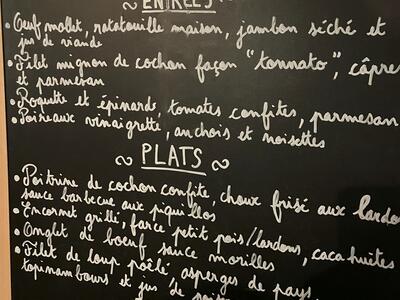 ENTRÉES
• Oeuf mollet, ratatouille maison, jambon séché et
jus de viande
• Filet mignon de cochon façon "tonnato", câpre
et parmesan
• Roquette et épinards, tomates confites, parmesan
• Poireaux vinaigrette, anchois et noisettes
~ PLATS ~
• Poitrine de cochon confite, choux frisé aux lardo
sauce barbecue aux piquillos
• Encornet grillé, farce petit pois/lardons,
• Onglet de boeuf sauce morilles, cacahuètes
• Filet de loup poêlé, asperges de pays
topinambours et jus de